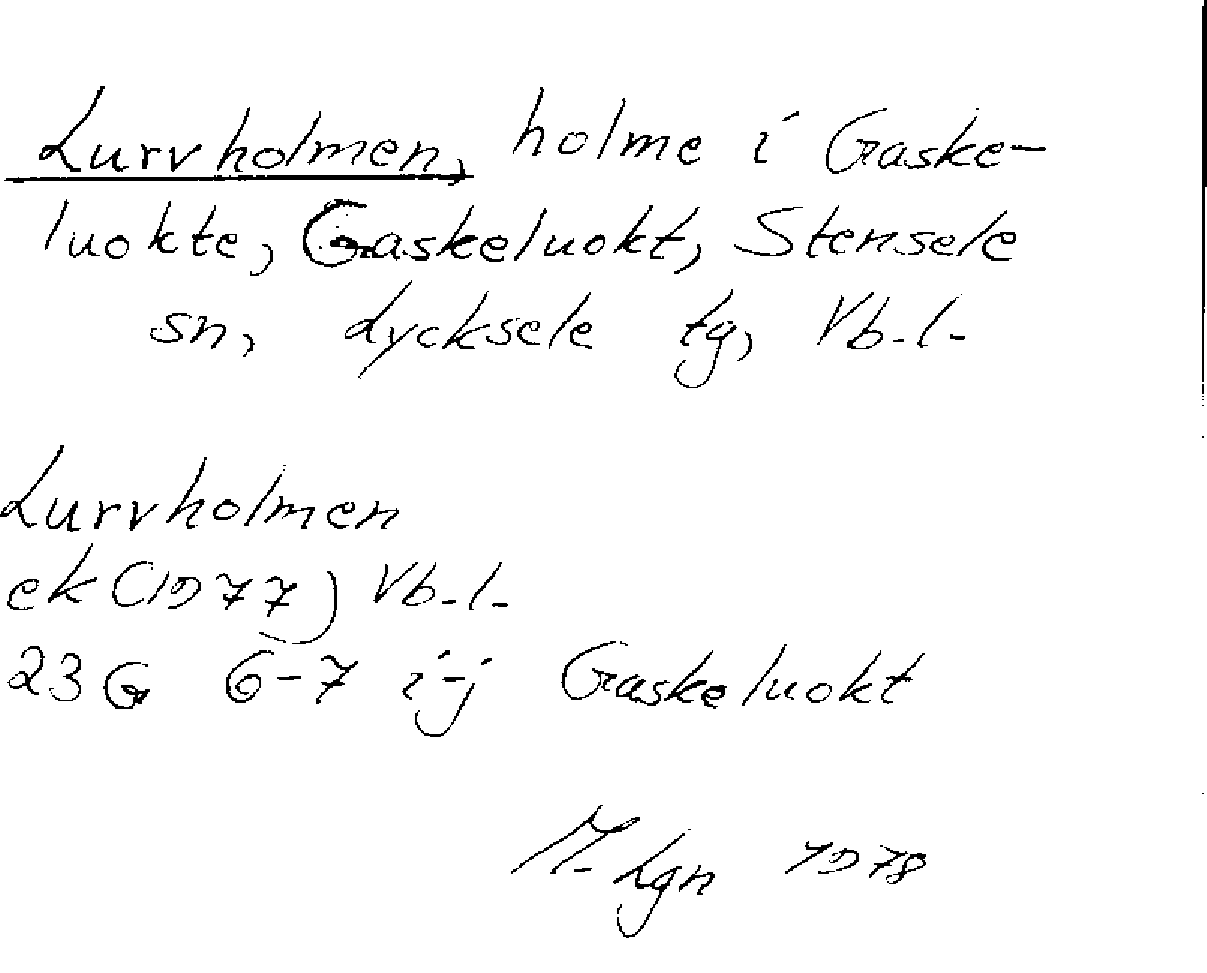 Lurvholmen, holme i Gaske-
luokte, Gaskeluokt, Stensele
sn, Lycksele tg, Vb.l.
Lurvholmen
ek (1977) Vb.l.
23 G 6-7 i-j Gaskeluokt
M. Lgn 1978